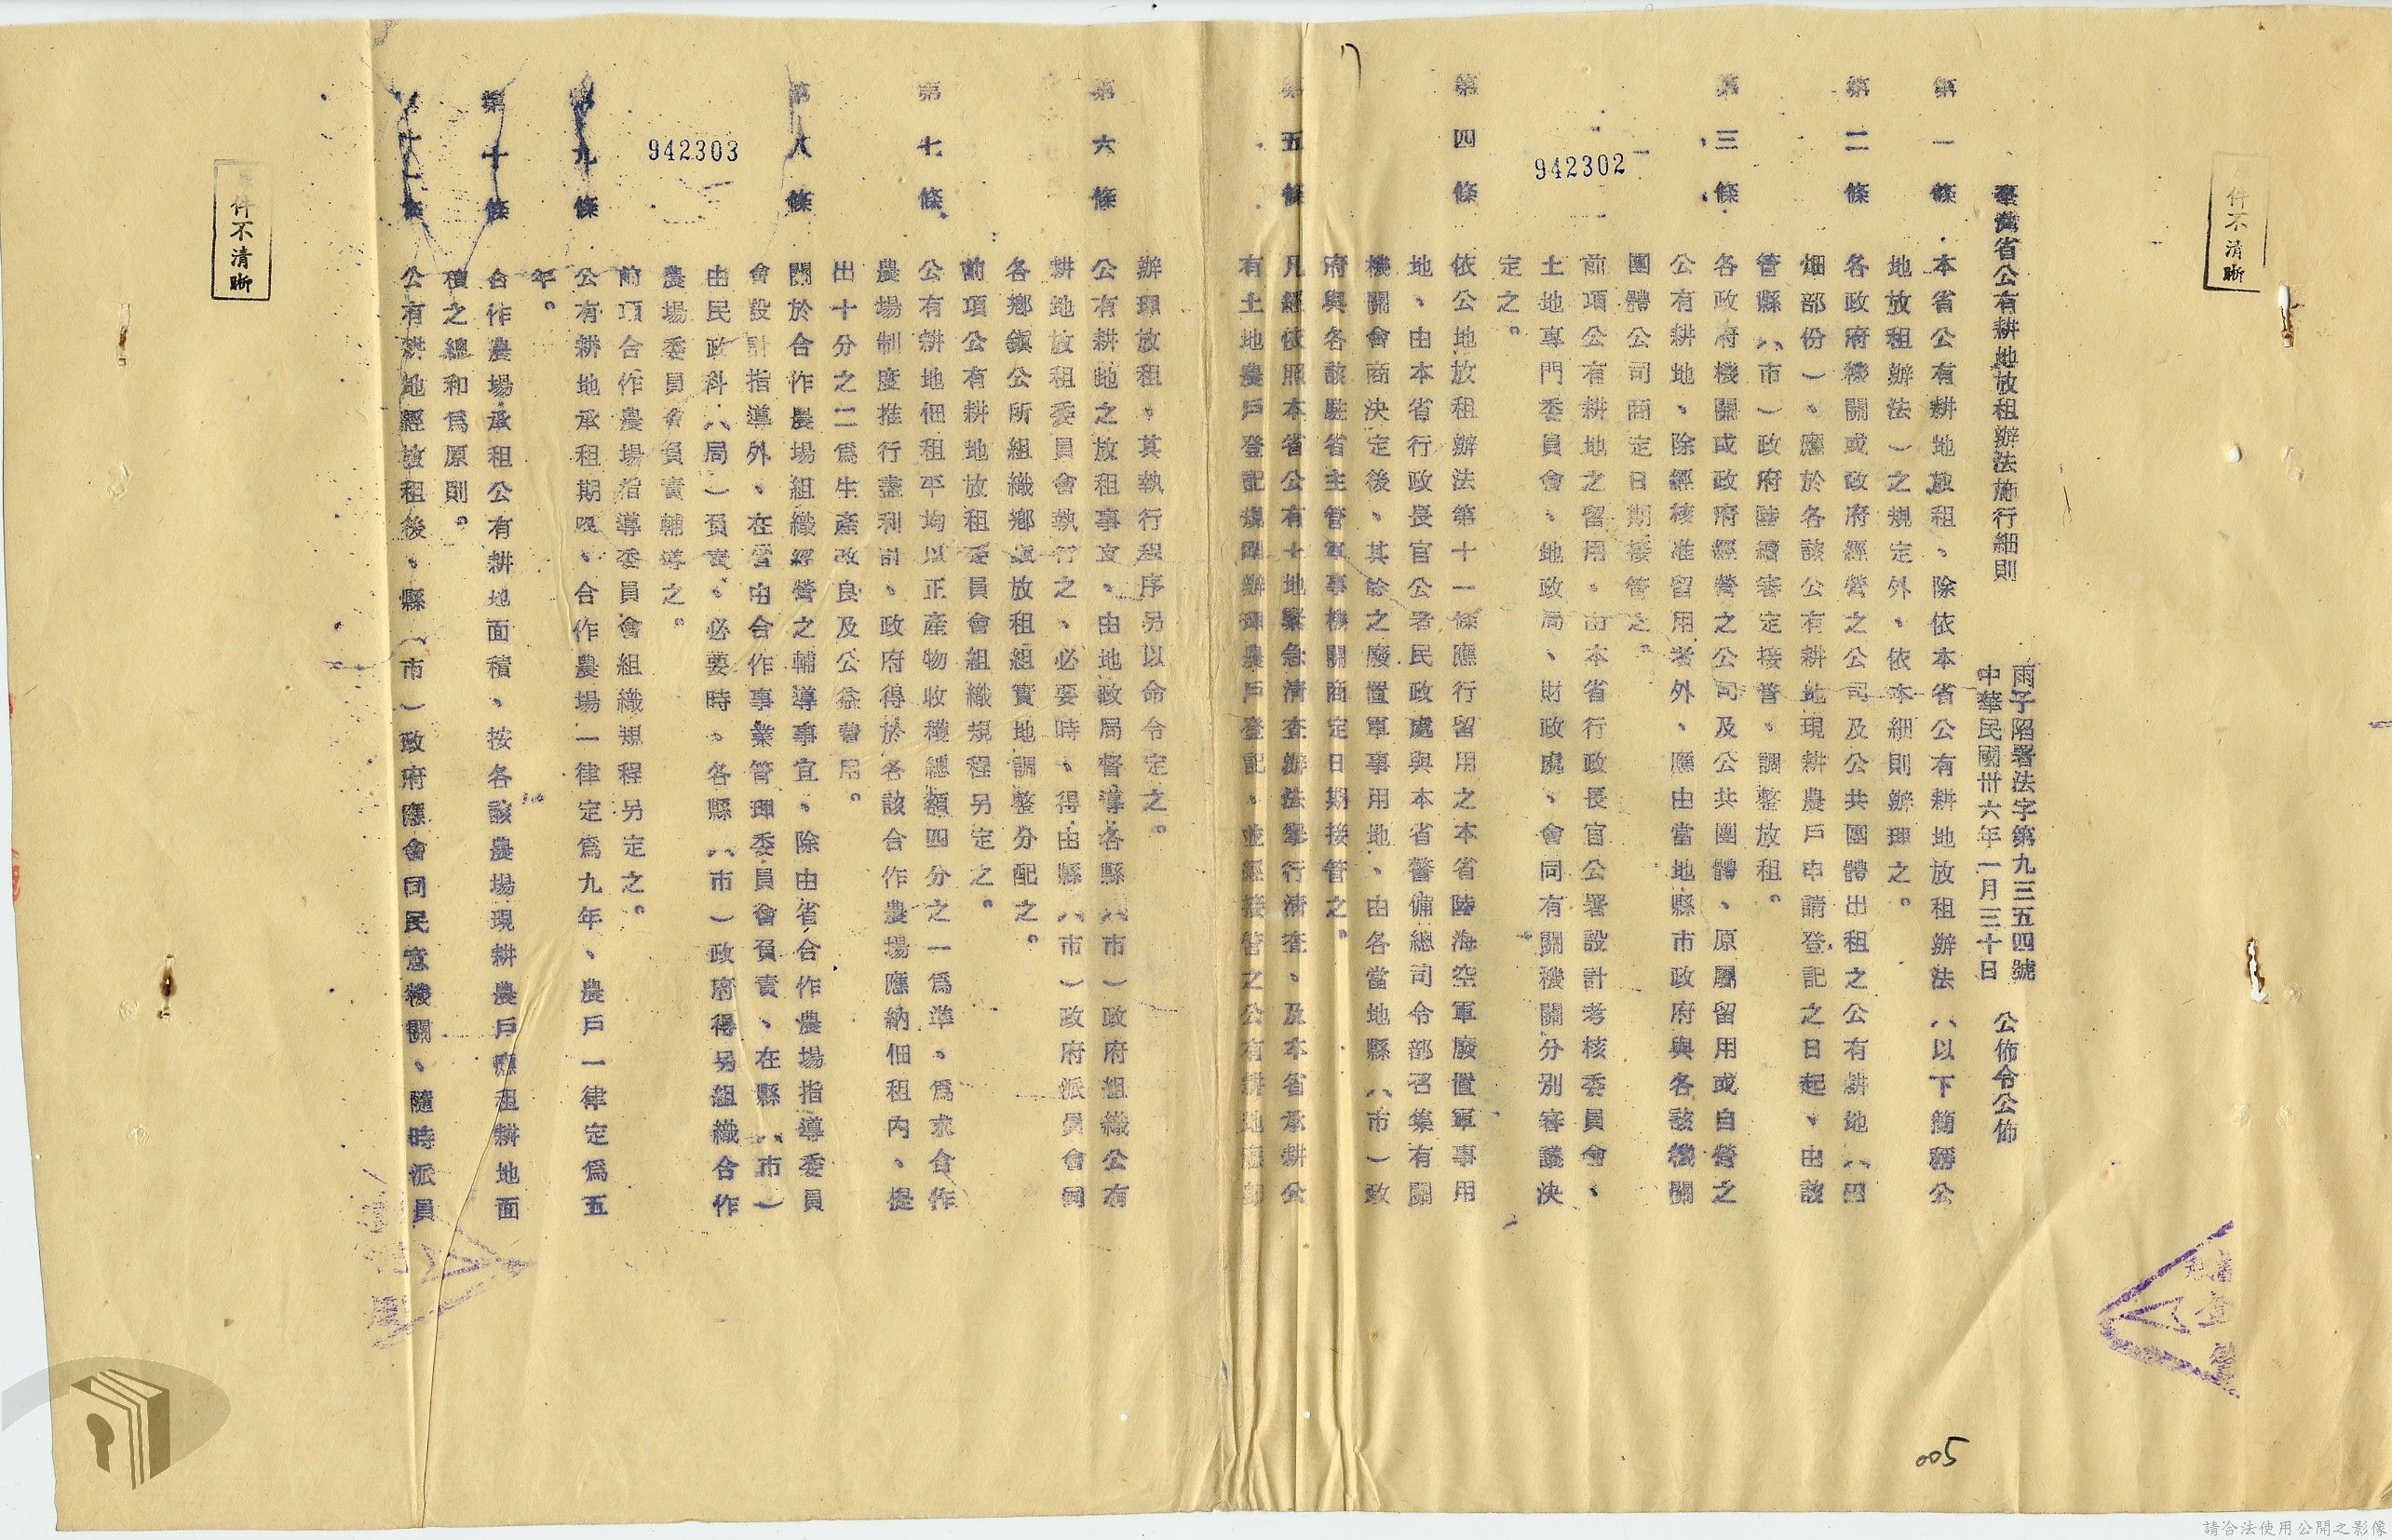 臺灣省公有耕地放租辦法施行細則
雨子陷署法字第九三五四號
中華民國卅六年一月三十日
公佈令公佈
第一條 本省公有耕地放租、除依本省公有耕地放租辦法（以下簡稱公
地放租辦法）之規定外、依本細則辦理之。
第二條 各政府機關或政府經營之公司及公共團體出租之公有耕地（田
畑部份）、應於各該公有耕地現耕農戶申請登記之日起、由該
管縣（市）政府陸續審定接管、調整放租。
第三條 各政府機關或政府經營之公司及公共團體、原屬留用或自營之
公有耕地、除經核准留用者外、應由當地縣市政府與各該機關
團體公司商定日期接管之。
前項公有耕地之留用、由本省行政長官公署設計考核委員會、
土地專門委員會、地政局、財政處、會同有關機關分別審議決
定之。
第四條 依公地放租辦法第十一條應行留用之本省陸海空軍廢置軍事用
地、由本省行政長官公署民政處與本省警備總司令部召集有關
機關會商決定後、其餘之廢置軍事用地、由各當地縣（市）政
府與各該駐省主管軍事機關商定日期接管之。
第五條 凡經依照本省公有土地緊急清查辦法舉行清查、及本省承耕公
有土地農戶登記規則辦理農戶登記、並經接管之公有耕地應即
辦理放租、其執行程序另以命令定之。
第六條 公有耕地之放租事宜、由地政局督導各縣（市）政府組織公有
耕地放租委員會執行之、必要時、得由縣（市）政府派員會同
各鄉鎮公所組織鄉鎮放租組實地調整分配之。
前項公有耕地放租委員會組織規程另定之。
第七條 公有耕地佃租平均以正產物收穫總額四分之一為準、為求合作
農場制度推行盡利計、政府得於各該合作農場應納佃租內、提
出十分之二為生產改良及公益費用。
第八條 關於合作農場組織經營之輔導事宜、除由省合作農場指導委員
會設計指導外、在省由合作事業管理委員會負責、在縣（市）
由民政科（局）負責、必要時、各縣（市）政府得另組織合作
農場委員會負責輔導之。
前項合作農場指導委員會組織規程另定之。
第九條 公有耕地承租期限、合作農場一律定為九年、農戶一律定為五
年。
第十條 合作農場承租公有耕地面積、按各該農場現耕農戶應租耕地面
積之總和為原則。
第十一條 公有耕地經放租後、縣（市）政府應會同民意機關、隨時派員
942302
942303
件不清晰
件不清晰
005
請合法使用公開之影像